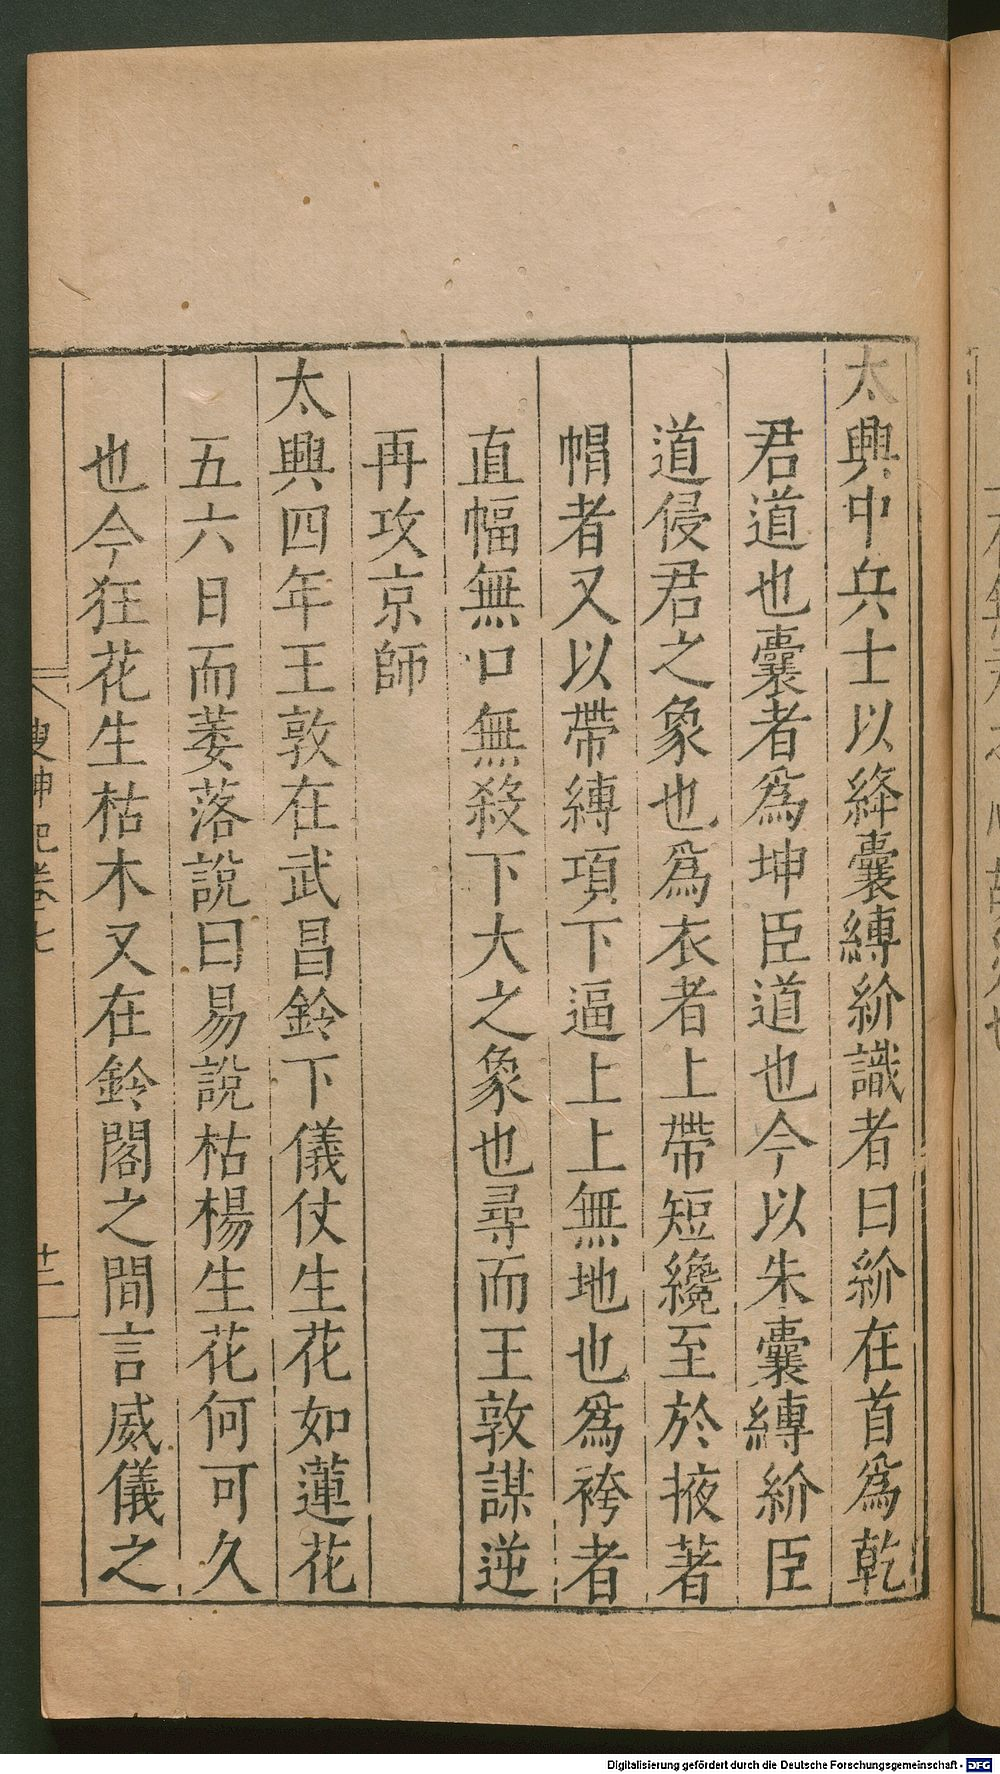 太興中兵士以絳囊縛紒識者曰紒在首爲乾
君道也囊者爲坤臣道也今以朱囊縛紒臣
道侵君之象也爲衣者上帶短纔至於掖著
帽者又以帶縛項下逼上上無地也爲袴者
直幅無口無殺下大之象也尋而王敦謀逆
再攻京師
太興四年王敦在武昌鈴下儀仗生花如蓮花
五六日而萎落說曰易說枯楊生花何可久
也今狂花生枯木又在鈴閣之間言威儀之
搜神記卷七
Digitalisierung gefördert durch die Deutsche Forschungsgemeinschaft - DFG